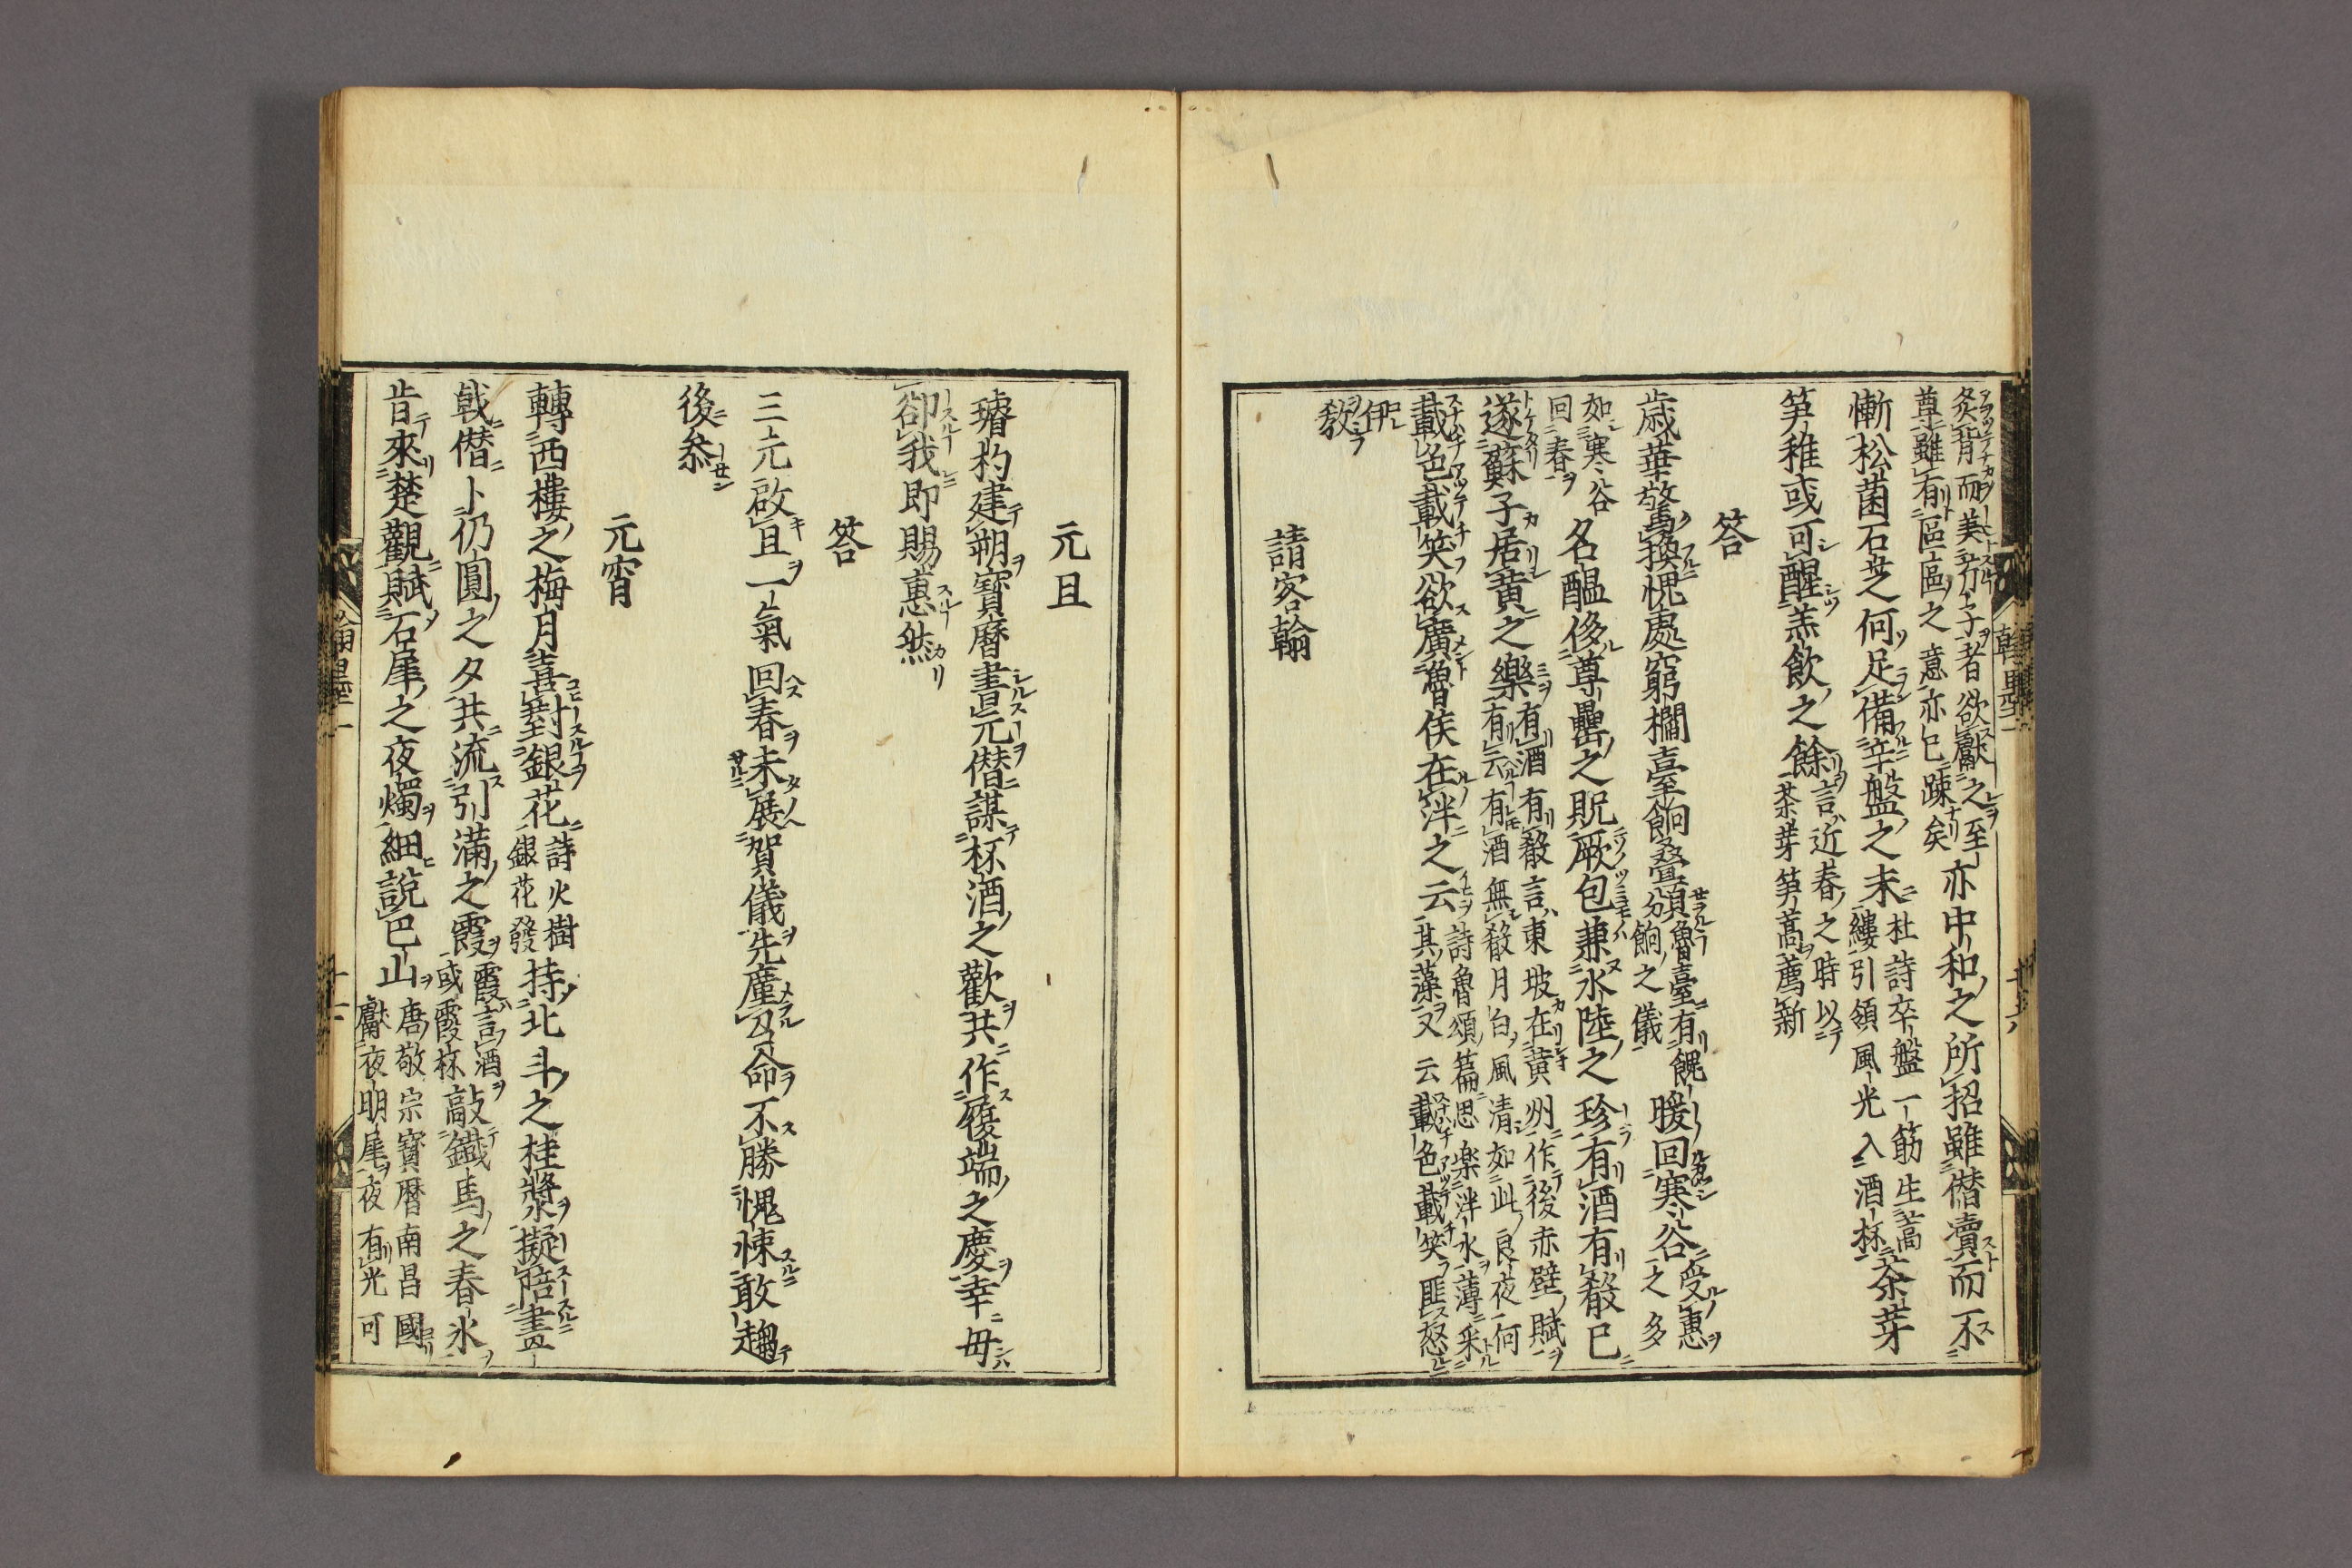 炙背而美芹子者欲獻之至
尊雖有區區之意亦已踈矣
亦中和之所招雖僣瀆而不
慚松菌石芝何足備辛盤之末
杜詩卒盤一筯生蒿
縷引領風光入酒杯
茶芽
笋稚或可醒羔飲之餘
言近春之時以
茶芽笋蒿薦新
答
歳華驚換愧處窮櫩臺餉疊頒
魯臺有餽
分餉之儀
暖回寒谷
受惠之多
如寒谷
回春
名醞侈尊罍之貺厥包兼水陸之珍有酒有殽已
遂蘇子居黄之樂
有酒有殽言東坡在黄州作後赤壁賦
有云有酒無殽月白風清如此良夜何
載色載笑欲廣魯侯在泮之云
詩魯頌篇思楽泮水薄采
其藻又云載色載笑匪怒
伊
敎
請客翰
翰墨一
元旦
璿杓建朔寶曆書元僣謀杯酒之歡共作履端之慶幸毋
卻我即賜惠然
答
三元啟旦一氣回春未展賀儀先廑召命不勝愧悚敢趨
後叅
元宵
轉西樓之梅月喜對銀花
詩火樹
銀花發
持北斗之桂漿擬陪畫
戟僣卜仍圓之夕共流引滿之霞
霞言酒
或霞杯
敲鐵馬之春氷
昔來楚觀賦石犀之夜燭細說巴山
唐敬宗寶曆南昌國
獻夜明犀夜有光可
翰墨一